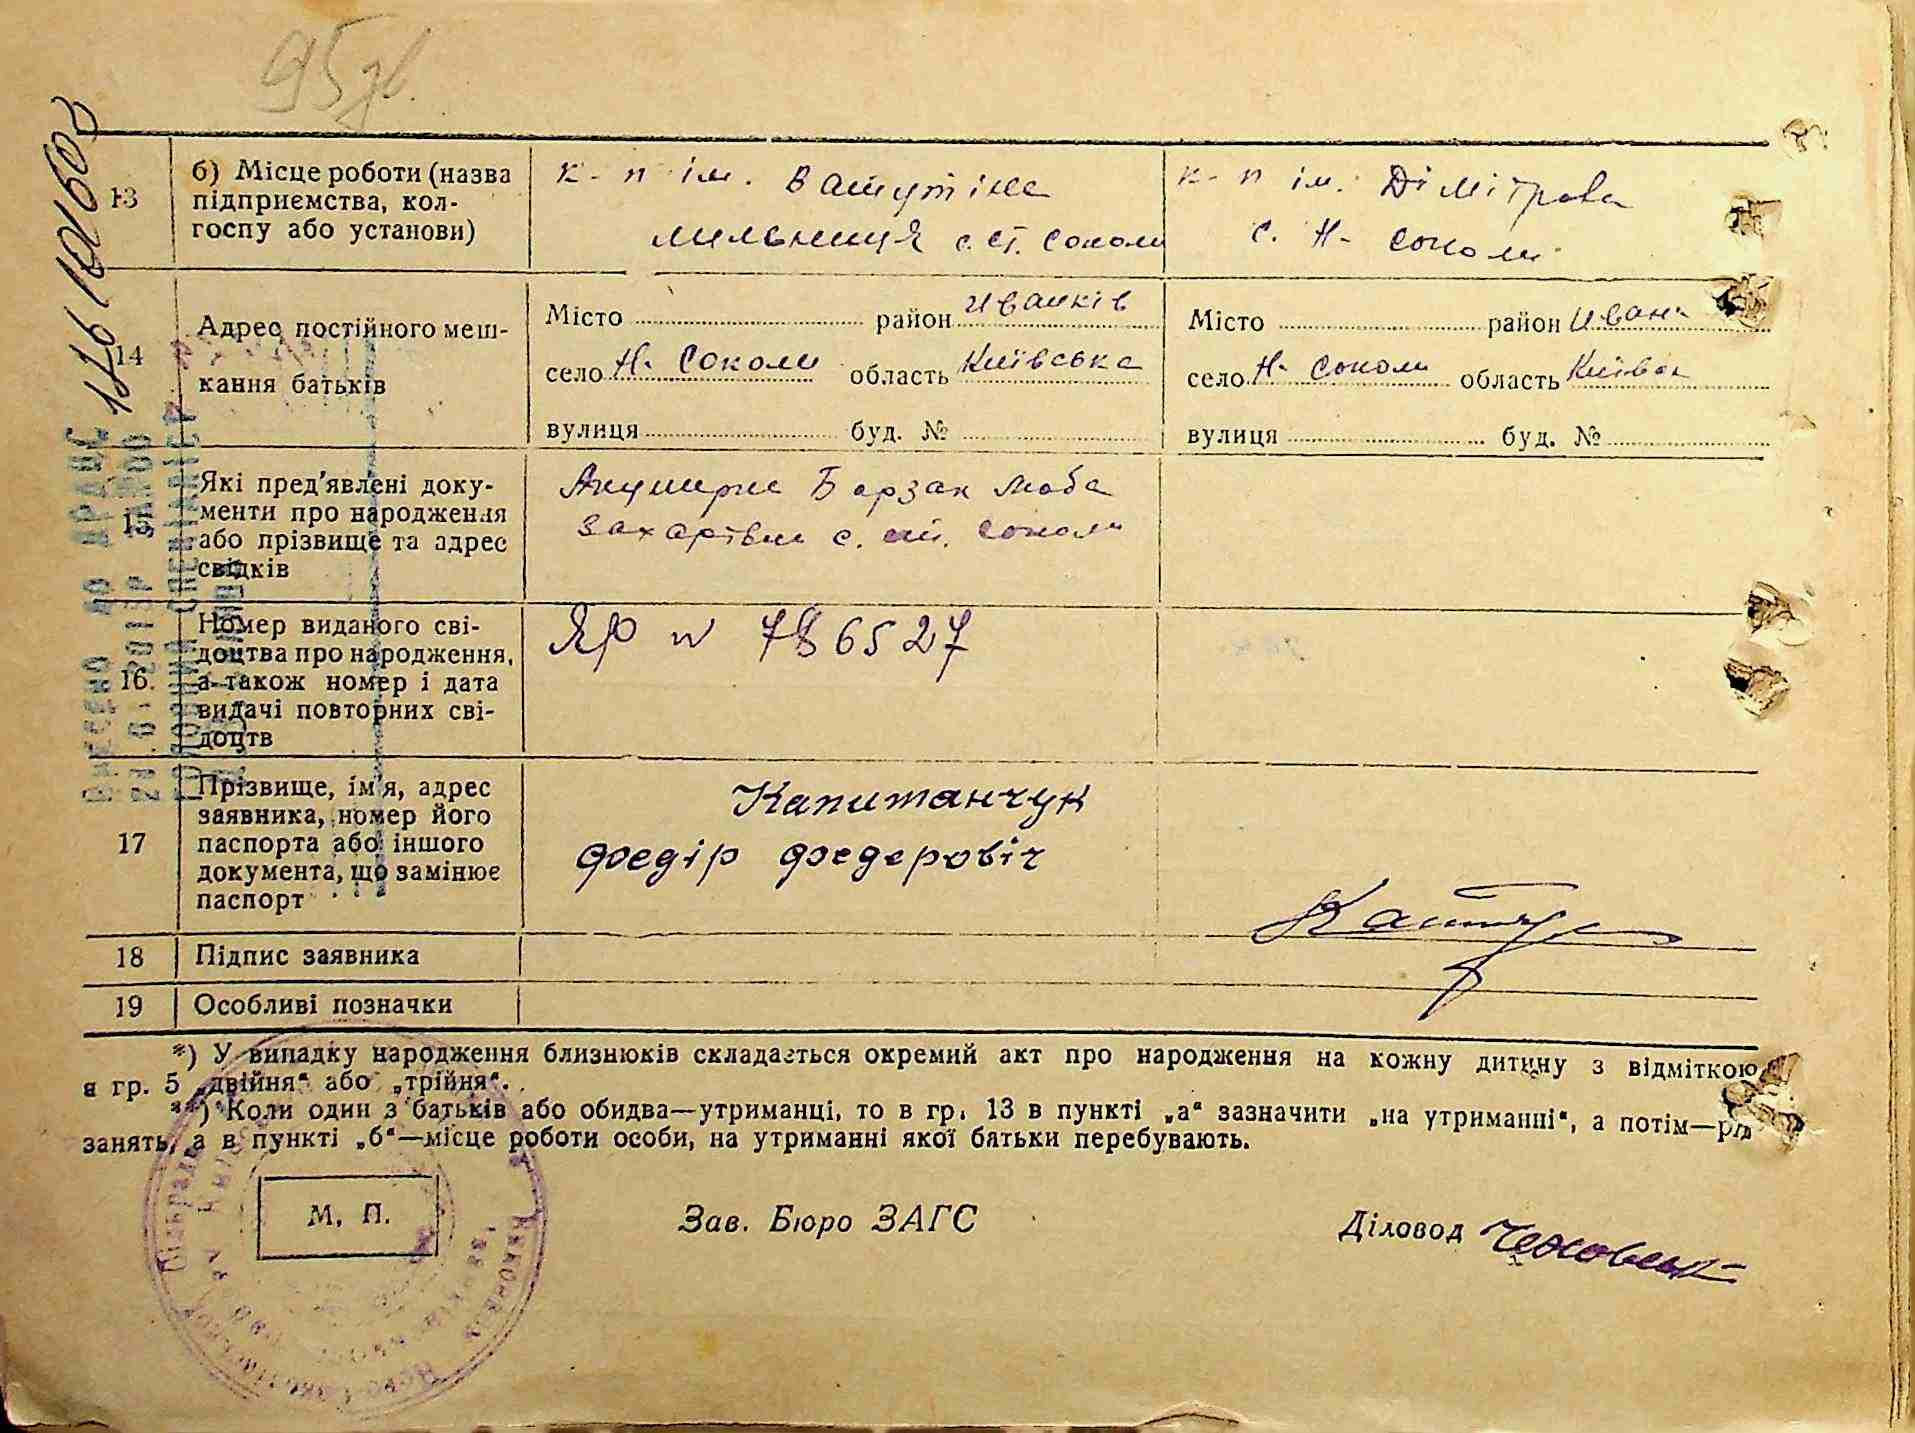 95 зв.
1761101603
13
б) Місце роботи (назва
підприємства, кол-
госпу або установи)
к-п ім. Ватутіна
мильниця с. ст. Соколи
к-п ім. Дімітрова
с. Н- Соколи
14
Адрес постійного меш-
кання батьків
Місто район Иванків
село Н. Соколи область Київська
вулиця буд. №
Місто район Иванк
село Н- Соколи область Київськ
вулиця буд. №
15
Які пред'явлені доку-
менти про народження
або прізвище та адрес
свідків
Акушерка Борзак Люба
Захарівна с. Соколи
16.
Номер виданого сві-
доцтва про народження,
а також номер і дата
видачі повторних сві-
доцтв
ЯР № 786527
17
Прізвище, ім'я, адрес
заявника, номер його
паспорта або іншого
документа, що замінює
паспорт
Капитанчук
Федір Федерович
18
Підпис заявника
19
Особливі позначки
*) У випадку народження близнюків складається окремий акт про народження на кожну дитину з відміткою
в гр. 5 „двійня“ або „трійня“.
**) Коли один з батьків або обидва—утриманці, то в гр. 13 в пункті „а“ зазначити „на утриманні“, а потім—рід
занять, а в пункті „б“—місце роботи особи, на утриманні якої батьки перебувають.
М. П.
Зав. Бюро ЗАГС
Діловод